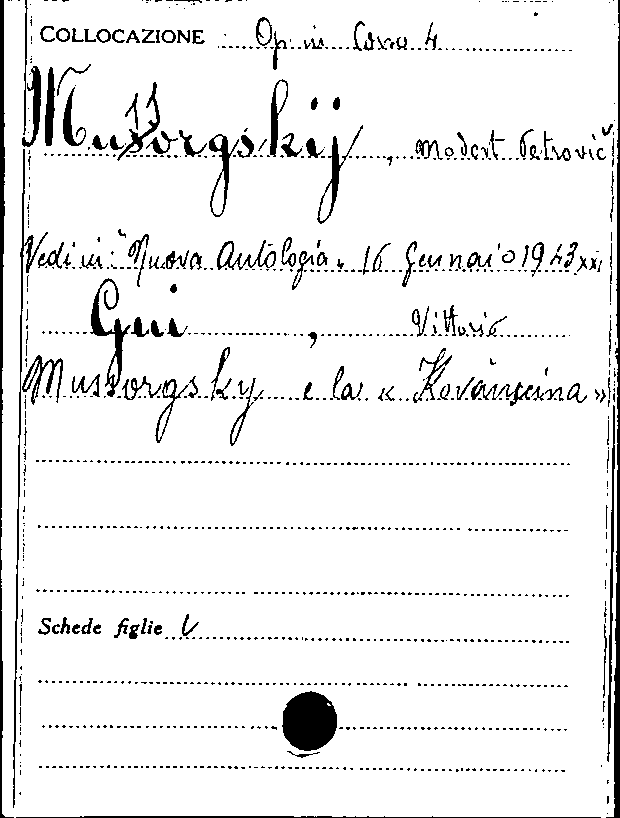 COLLOCAZIONE Op. in Cassa 4
Mussorgskij, Modest Petrovič
Vedi in: "Nuova Antologia" 16 Gennaio 1943 XXI
Gui, Vittorio
Mussorgsky e la « Kovànscina »
Schede figlie V